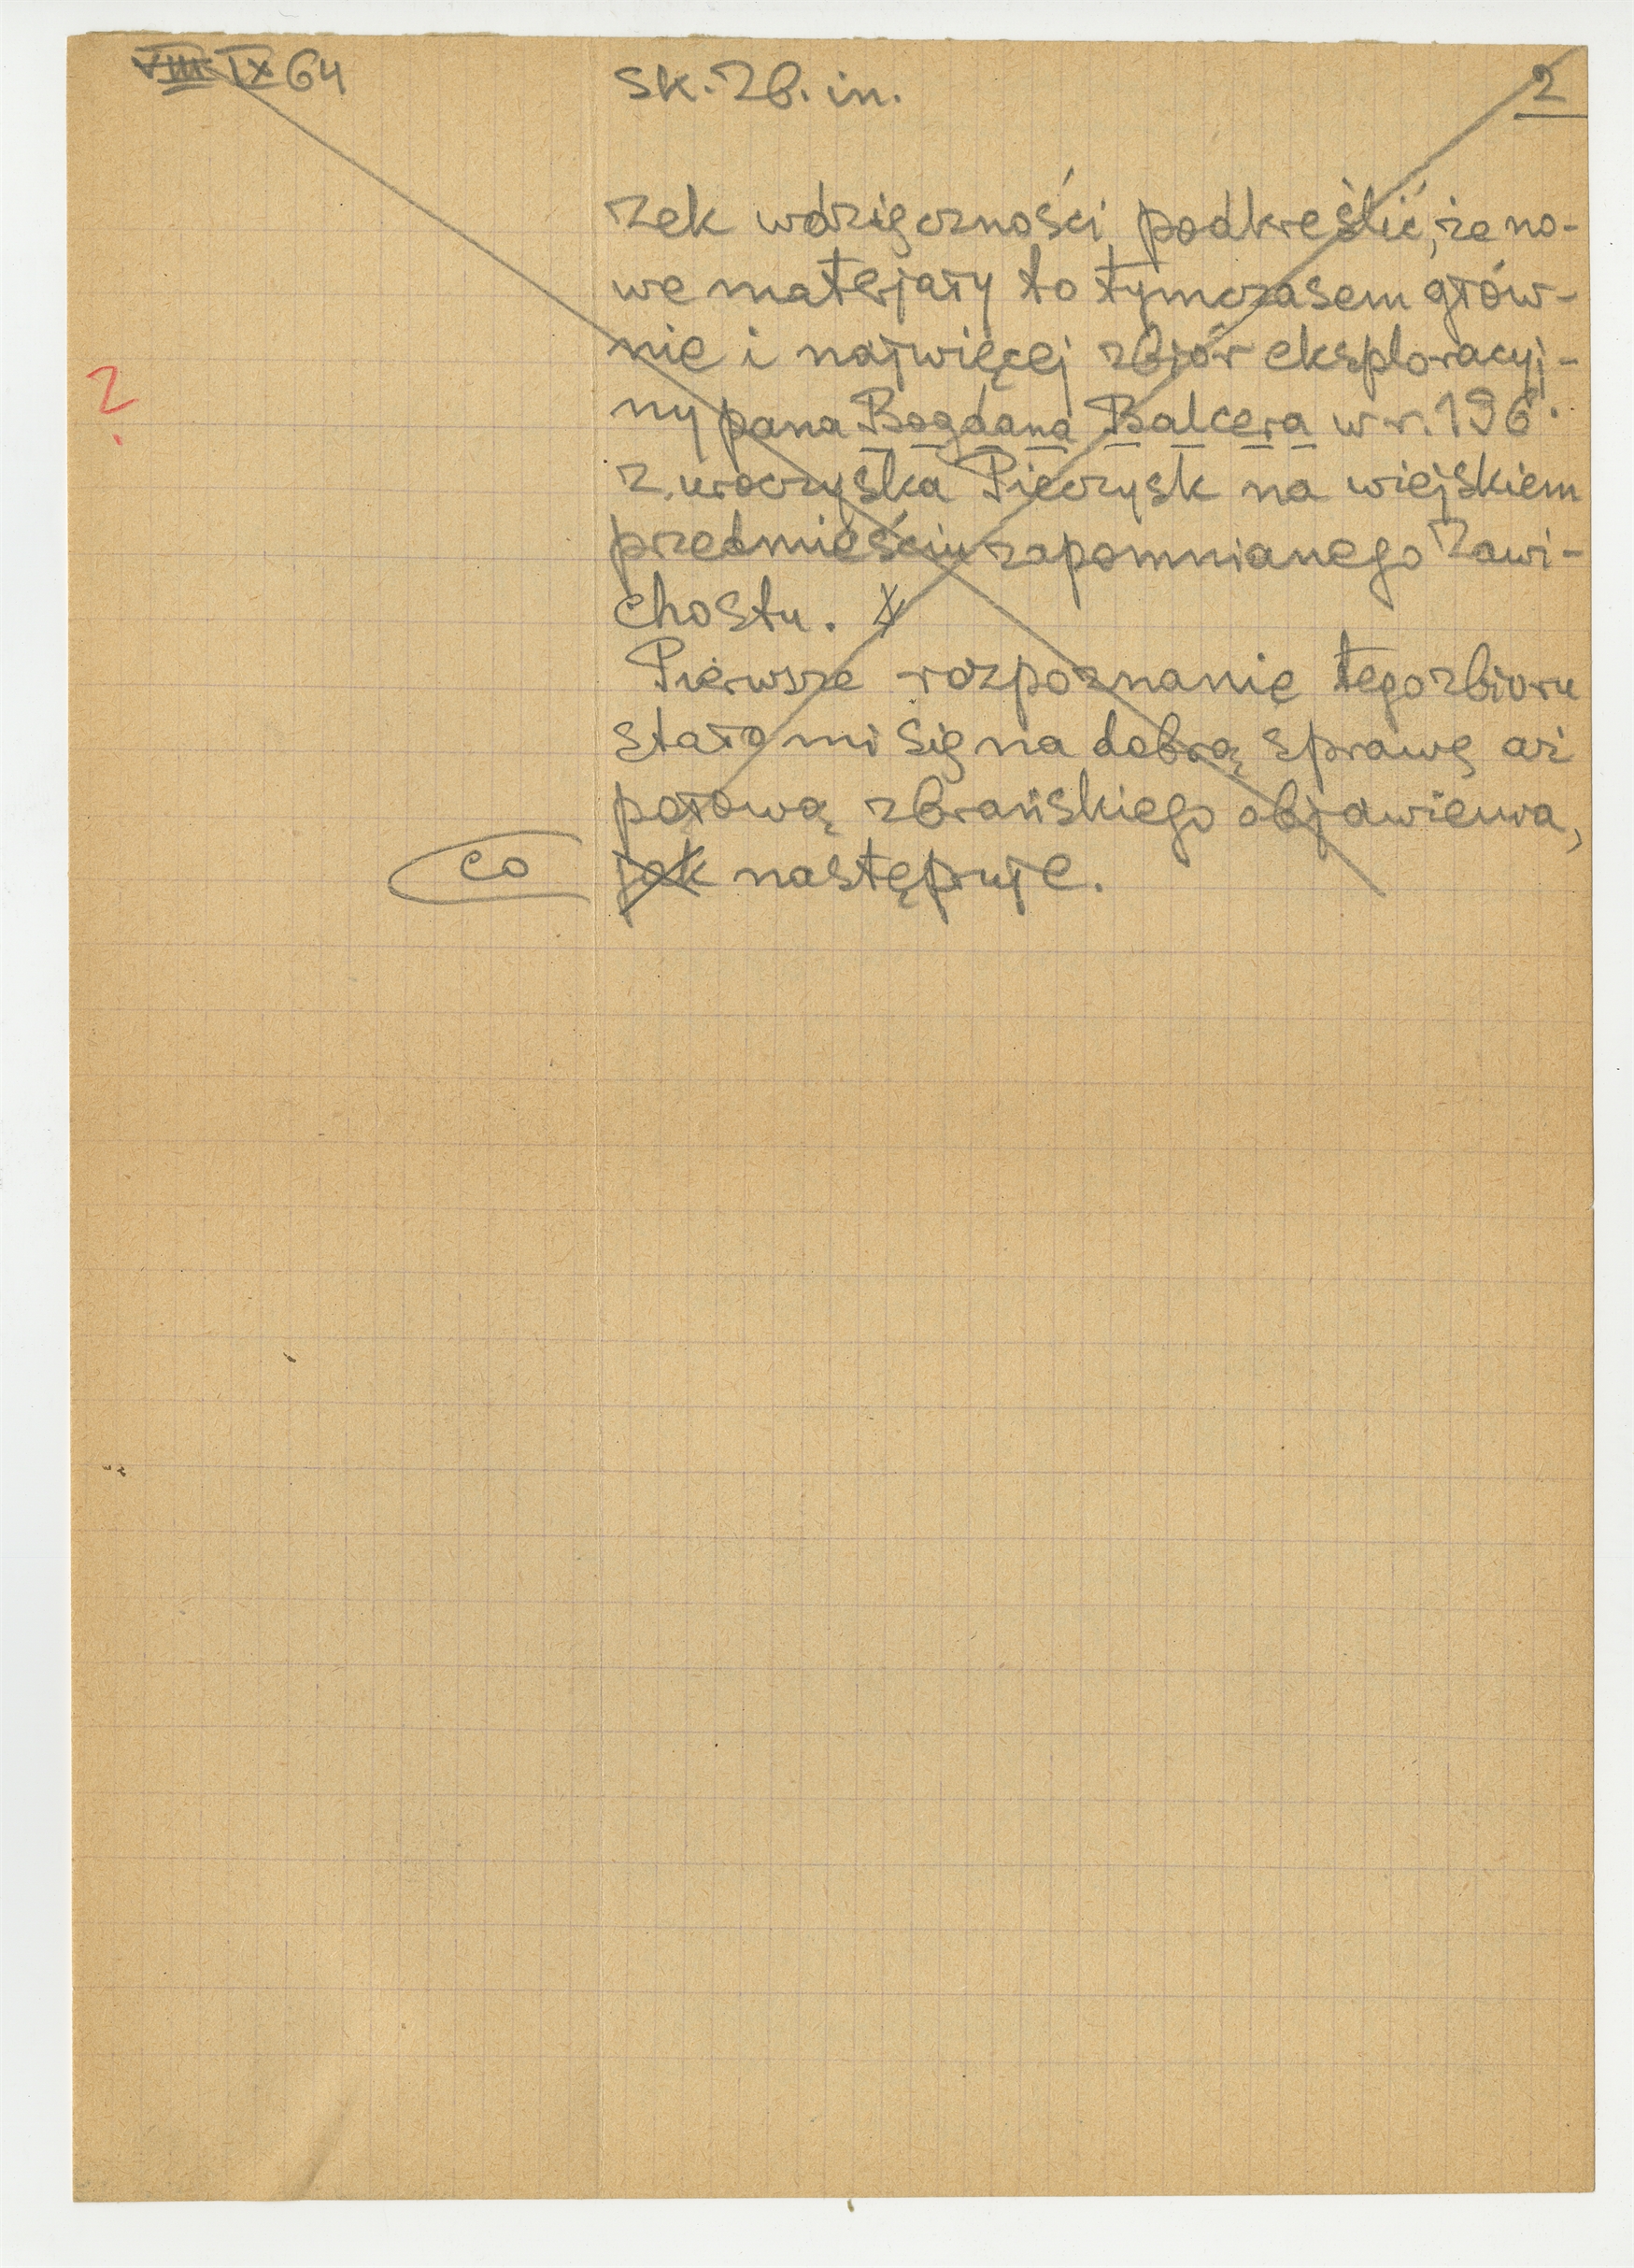 VIII IX 64 sk. Zb. in. 2
zek wdzięczności podkreślić, że no-
we materjały to tymczasem głów-
nie i najwięcej zbiór eksploracyj-
?
ny pana Bogdana Balcera w r. 196 .
z uroczyska Pieczysk na wiejskiem
przedmieściu zapomnianego Zawi-
chostu.
Pierwsze rozpoznanie tego zbioru
stało mi się na dobrą sprawę aż
połową zbrańskiego objawienia,
co jak następuje.